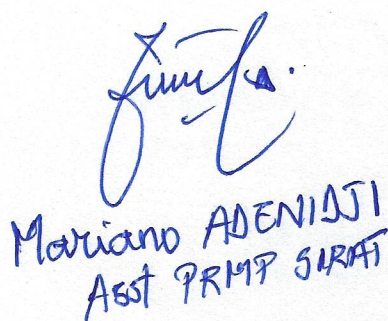 Mariano ADENIDJI
Asst PRMP